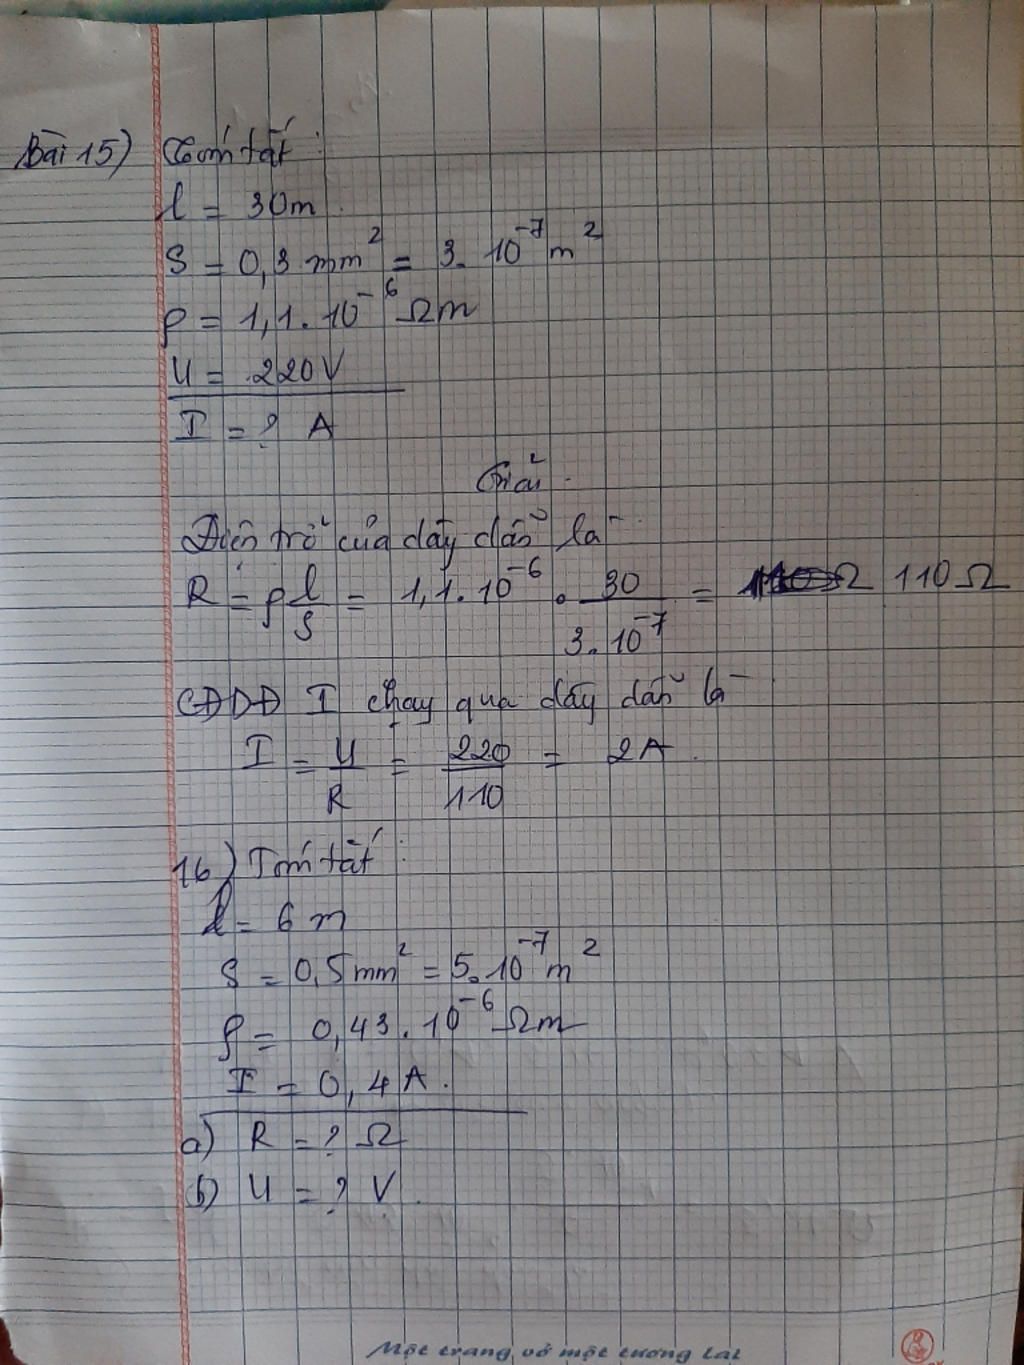 Bài 15) Tóm tắt:
l = 30m.
S = 0,3 mm² = 3. 10⁻⁷ m²
ρ = 1,1. 10⁻⁶ Ωm
U = 220V
I = ? A
Giải.
Điện trở của dây dẫn là
R = ρ l/S = 1,1. 10⁻⁶ . 30/3. 10⁻⁷ = 110 Ω
CĐDĐ I chạy qua dây dẫn là
I = U/R = 220/110 = 2A.
16) Tóm tắt:
l = 6 m
S = 0,5 mm² = 5. 10⁻⁷ m²
ρ = 0,43. 10⁻⁶ Ωm
I = 0,4 A.
a) R = ? Ω
b) U = ? V.
Một trang vở một tương lai